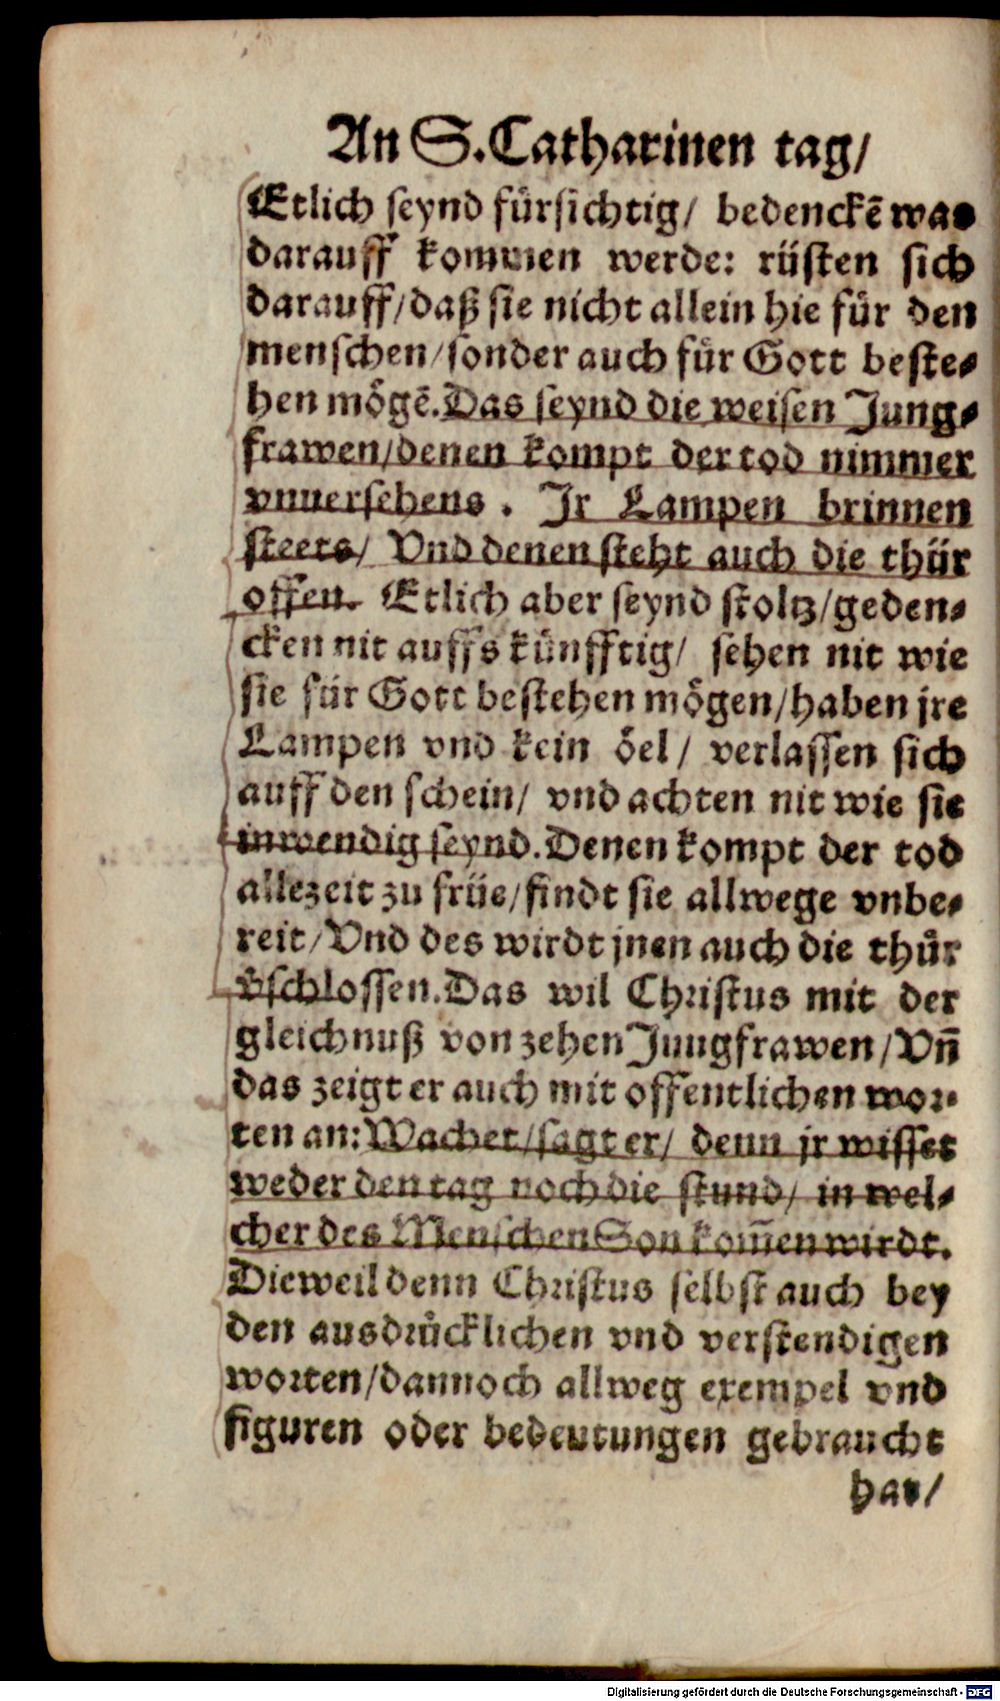 An S. Catharinen tag/
Etlich seynd fürsichtig/ bedenckē was
darauff kommen werde: rüsten sich
darauff/daß sie nicht allein hie für den
menschen/sonder auch für Gott beste-
hen mögē. Das seynd die weisen Jung-
frawen/denen kompt der tod nimmer
vnuersehens. Jr Lampen brinnen
steets/ Vnd denen steht auch die thür
offen. Etlich aber seynd stoltz/geden-
cken nit auffs künfftig/ sehen nit wie
sie für Gott bestehen mögen/haben jre
Lampen vnd kein öel/ verlassen sich
auff den schein/ vnd achten nit wie sie
inwendig seynd. Denen kompt der tod
allezeit zu früe/findt sie allwege vnbe-
reit/Vnd des wirdt jnen auch die thür
v̄schlossen. Das wil Christus mit der
gleichnuß von zehen Jungfrawen/Vn̄
das zeigt er auch mit offentlichen wor-
ten an: Wachet/sagt er/ denn jr wisset
weder den tag noch die stund/ in wel-
cher des Menschen Son kom̄en wirdt.
Dieweil denn Christus selbst auch bey
den ausdrücklichen vnd verstendigen
worten/dannoch allweg exempel vnd
figuren oder bedeutungen gebraucht
hat/
Digitalisierung gefördert durch die Deutsche Forschungsgemeinschaft - DFG